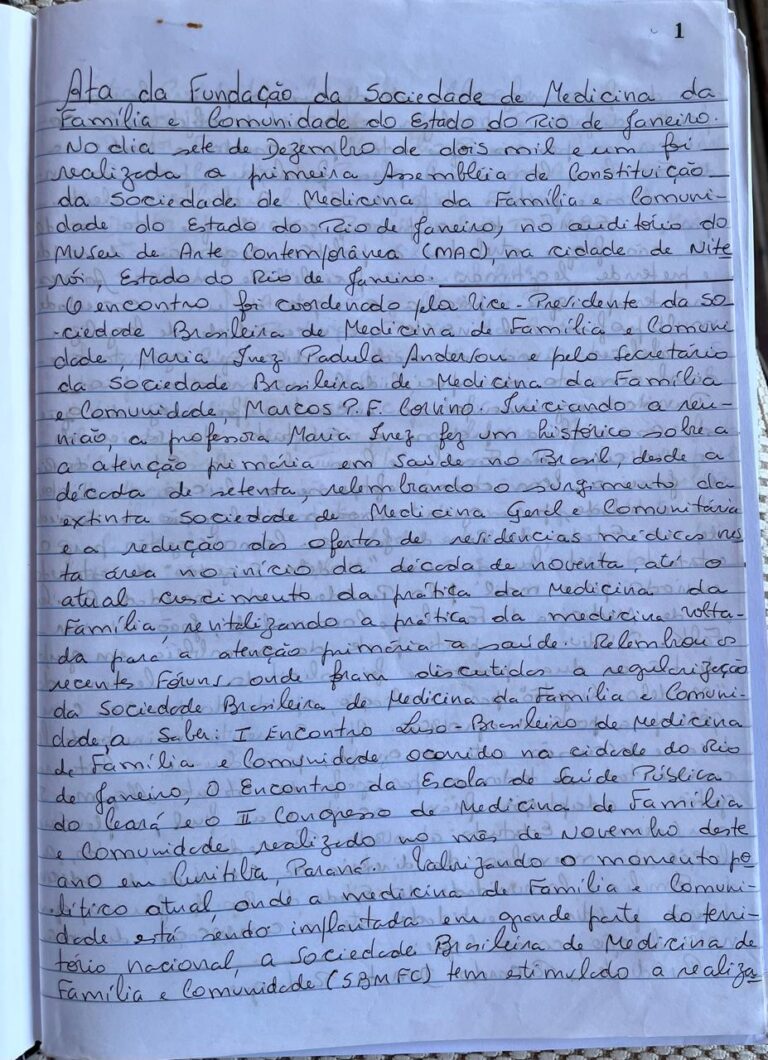 1
Ata da Fundação da Sociedade de Medicina da
Família e Comunidade do Estado do Rio de Janeiro.
No dia sete de Dezembro de dois mil e um foi
realizada a primeira Assembléia de Constituição
da Sociedade de Medicina da Família e Comuni-
dade do Estado do Rio de Janeiro, no auditório do
Museu de Arte Contemporânea (MAC), na cidade de Nite
rói, Estado do Rio de Janeiro.
O encontro foi coordenado pela Vice-Presidente da So
ciedade Brasileira de Medicina de Família e Comuni
dade, Maria Inez Padula Anderson e pelo Secretário
da Sociedade Brasileira de Medicina da Família
e Comunidade, Marcos P. F. Corvino. Iniciando a reu-
nião, a professora Maria Inez fez um histórico sobre a
a atenção primária em Saúde no Brasil, desde a
década de setenta, relembrando o surgimento da
extinta Sociedade de Medicina Geral e Comunitária
e a redução das ofertas de residências médicas nes
ta área no início da década de noventa, até o
atual crescimento da prática da Medicina da
Família, revitalizando a prática da medicina volta-
da para a atenção primária a saúde. Relembrou os
recentes Fóruns onde foram discutidos a regularização
da Sociedade Brasileira de Medicina da Família e Comuni-
dade, a Saber: I Encontro Luso-Brasileiro de Medicina
de Família e Comunidade ocorrido na cidade do Rio
de Janeiro, O Encontro da Escola de Saúde Pública
do Ceará e o II Congresso de Medicina de Família
e Comunidade realizado no mês de Novembro deste
ano em Curitiba, Paraná. Valorizando o momento po
lítico atual, onde a medicina de Família e Comuni-
dade está sendo implantada em grande parte do terri-
tório nacional, a Sociedade Brasileira de Medicina de
Família e Comunidade (SBMFC) tem estimulado a realiza